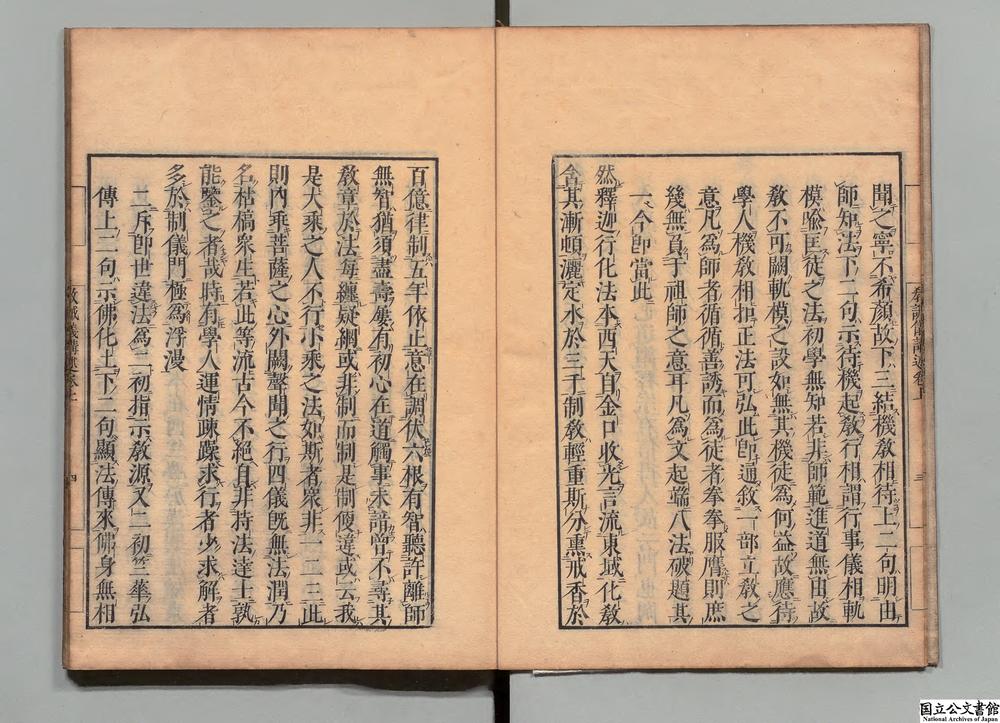 聞之寧不希顏故下三結機教相待上二句明由
師知法下二句示待機起教行相謂行事儀相軌
模喩匡徒之法初學無知若非師範進道無由故
教不可闕軌模之設如無其機徒爲何益故應待
學人機教相拒正法可弘此卽通敘一部立教之
意凡爲師者循循善誘而爲徒者拳拳服膺則庶
幾無負于祖師之意耳凡爲文起端八法破題其
一今卽當此
然釋迦行化法本西天自金口收光言流東域化教
含其漸頓灑定水於三千制教輕重斯分熏戒香於
百億律制五年依止意在調伏六根有智聽許離師
無智猶須盡壽屢有初心在道觸事未諳曾不尋其
教章於法每纏疑網或非制而制是制便違或云我
是大乘之人不行小乘之法如斯者衆非一二三此
則內乖菩薩之心外闕聲聞之行四儀旣無法潤乃
名枯槁衆生若此等流古今不絕自非持法達士孰
能鑒之者哉時有學人運情疎躁求行者少求解者
多於制儀門極爲浮漫
二斥卽世違法爲二初指示教源又二初竺華弘
傳上二句示佛化土下二句顯法傳來佛身無相
三
四
国立公文書館
National Archives of Japan